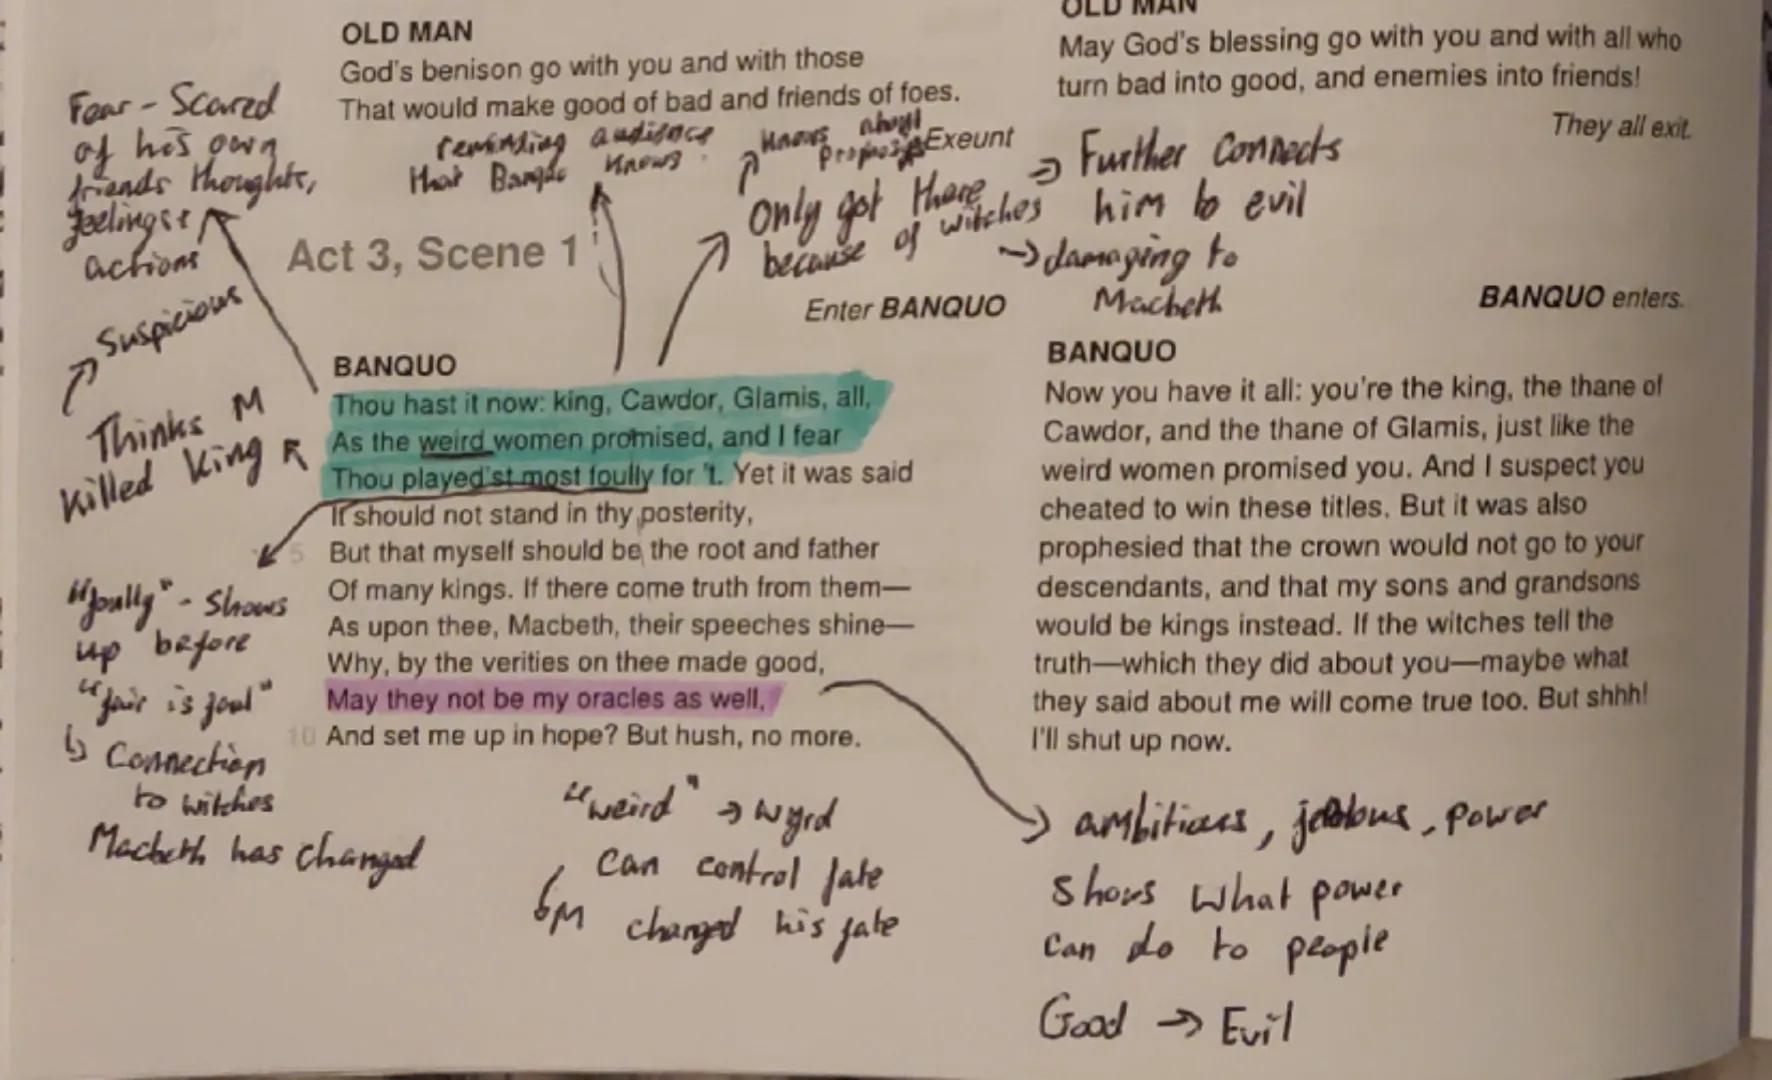 OLD MAN
God's benison go with you and with those
That would make good of bad and friends of foes.
Exeunt
Fear - Scared
of his own
friends thoughts,
feelings +
actions
reminding audience
that Banquo knows.
knows about
Only got there
because of witches
→ Further connects
him to evil
→ damaging to
Macbeth
Suspicious
Thinks M
killed King
Act 3, Scene 1
Enter BANQUO
BANQUO
Thou hast it now: king, Cawdor, Glamis, all,
As the weird women promised, and I fear
Thou played'st most foully for 't. Yet it was said
It should not stand in thy posterity,
5 But that myself should be the root and father
Of many kings. If there come truth from them—
As upon thee, Macbeth, their speeches shine—
Why, by the verities on thee made good,
May they not be my oracles as well,
10 And set me up in hope? But hush, no more.
"foully" - Shows
up before
"fair is foul"
↳ Connection
to witches
Macbeth has changed
"weird" → wyrd
can control fate
↳ M changed his fate
OLD MAN
May God's blessing go with you and with all who
turn bad into good, and enemies into friends!
They all exit.
BANQUO enters.
BANQUO
Now you have it all: you're the king, the thane of
Cawdor, and the thane of Glamis, just like the
weird women promised you. And I suspect you
cheated to win these titles. But it was also
prophesied that the crown would not go to your
descendants, and that my sons and grandsons
would be kings instead. If the witches tell the
truth—which they did about you—maybe what
they said about me will come true too. But shhh!
I'll shut up now.
→ ambitious, jealous, power
shows what power
can do to people
Good → Evil